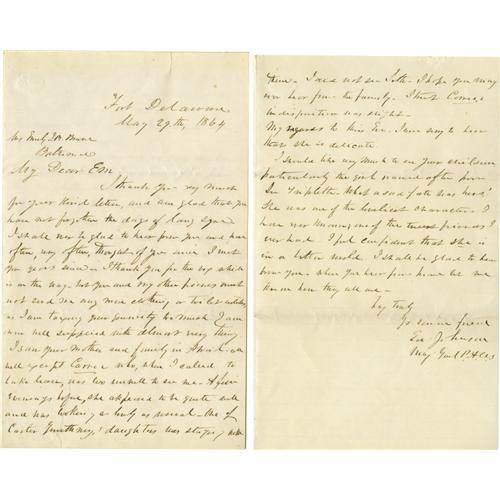 Fort Delaware
May 29th, 1864
Baltimore
My Dear Em
I thank you very much
for your kind letter, and am glad that you
have not forgotten the days of lang syne
I shall ever be glad to hear from you and have
often, very often, thought of you since I met
you years since - I thank you for the which
is on the way. but you and my other friends must
not send me any more clothing or toilet articles
as I am taxing your generosity too much. I am
now well supplied with almost every thing
I saw your Mother and family in
well except Carrie who, when I called to
take leave, was too unwell to see me - A few
evenings before, she appeared to be quite well
and was looking as lovely as usual - One of
Carter daughters was staying with
them - I did not see Seth - I hope you may
soon hear from the family. I trust Carrie's
indisposition was slight -
My regards to Miss Eve. I am sorry to hear
that she is delicate.
I should like very much to see your children
particularly the girl named after poor
Sue Templeton. What a sad fate was hers!
She was one of the loveliest characters I
have ever known, one of the truest friends I
ever had. I feel confident that she is
in a better world. I shall be glad to hear
from you - When you hear from home let me
know how they all are -
Very truly
Yr sincere friend
Ed. Johnson
Maj Genl P.A.C.S